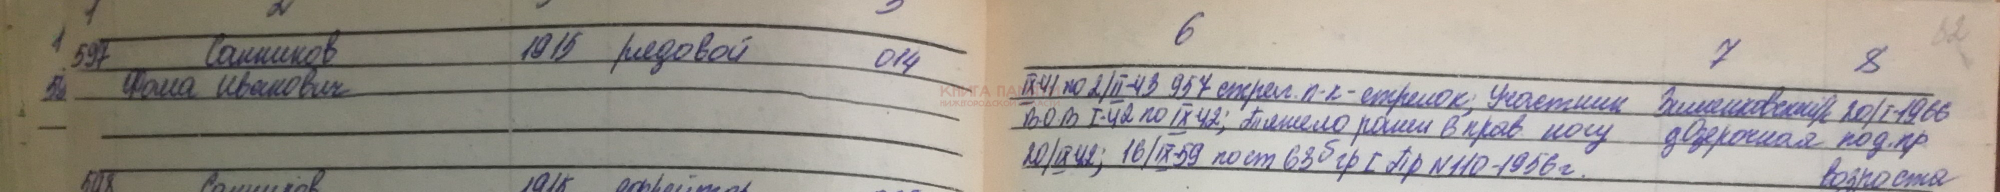 1 2 3 5
1 597 Санников 1915 рядовой 014
Фома Иванович
598 Санников 1915 ефрейтор
6 7 8 62
IX-41 по 2/II-43 957 стрел. п-к - стрелок; Участник Зимёнковский 20/I-1966
ВОВ I-42 по IX 42; тяжело ранен в прав ногу дозрочная под.пр
20/IX 42; 16/IX-59 по ст 63 б гр I Пр N110-1956 г. возраста
КНИГА ПАМЯТИ
НИЖЕГОРОДСКОЙ ОБЛАСТИ